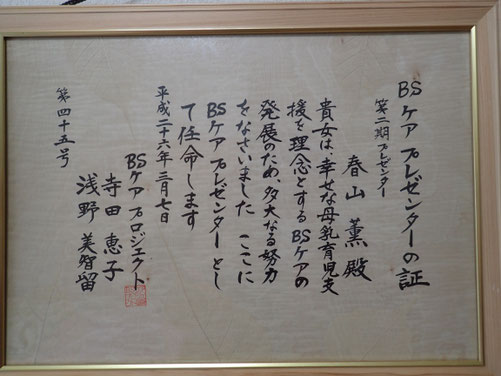 BSケア プレゼンターの証
第二期プレゼンター
春山 薫 殿
貴女は幸せな母乳育児支
援を理念とするBSケアの
発展のため、多大なる努力
をなさいました ここに
BSケア プレゼンターとし
て任命します
平成二十六年 三月七日
BSケア プロジェクト
寺田 恵子
浅野 美智留
第四十五号